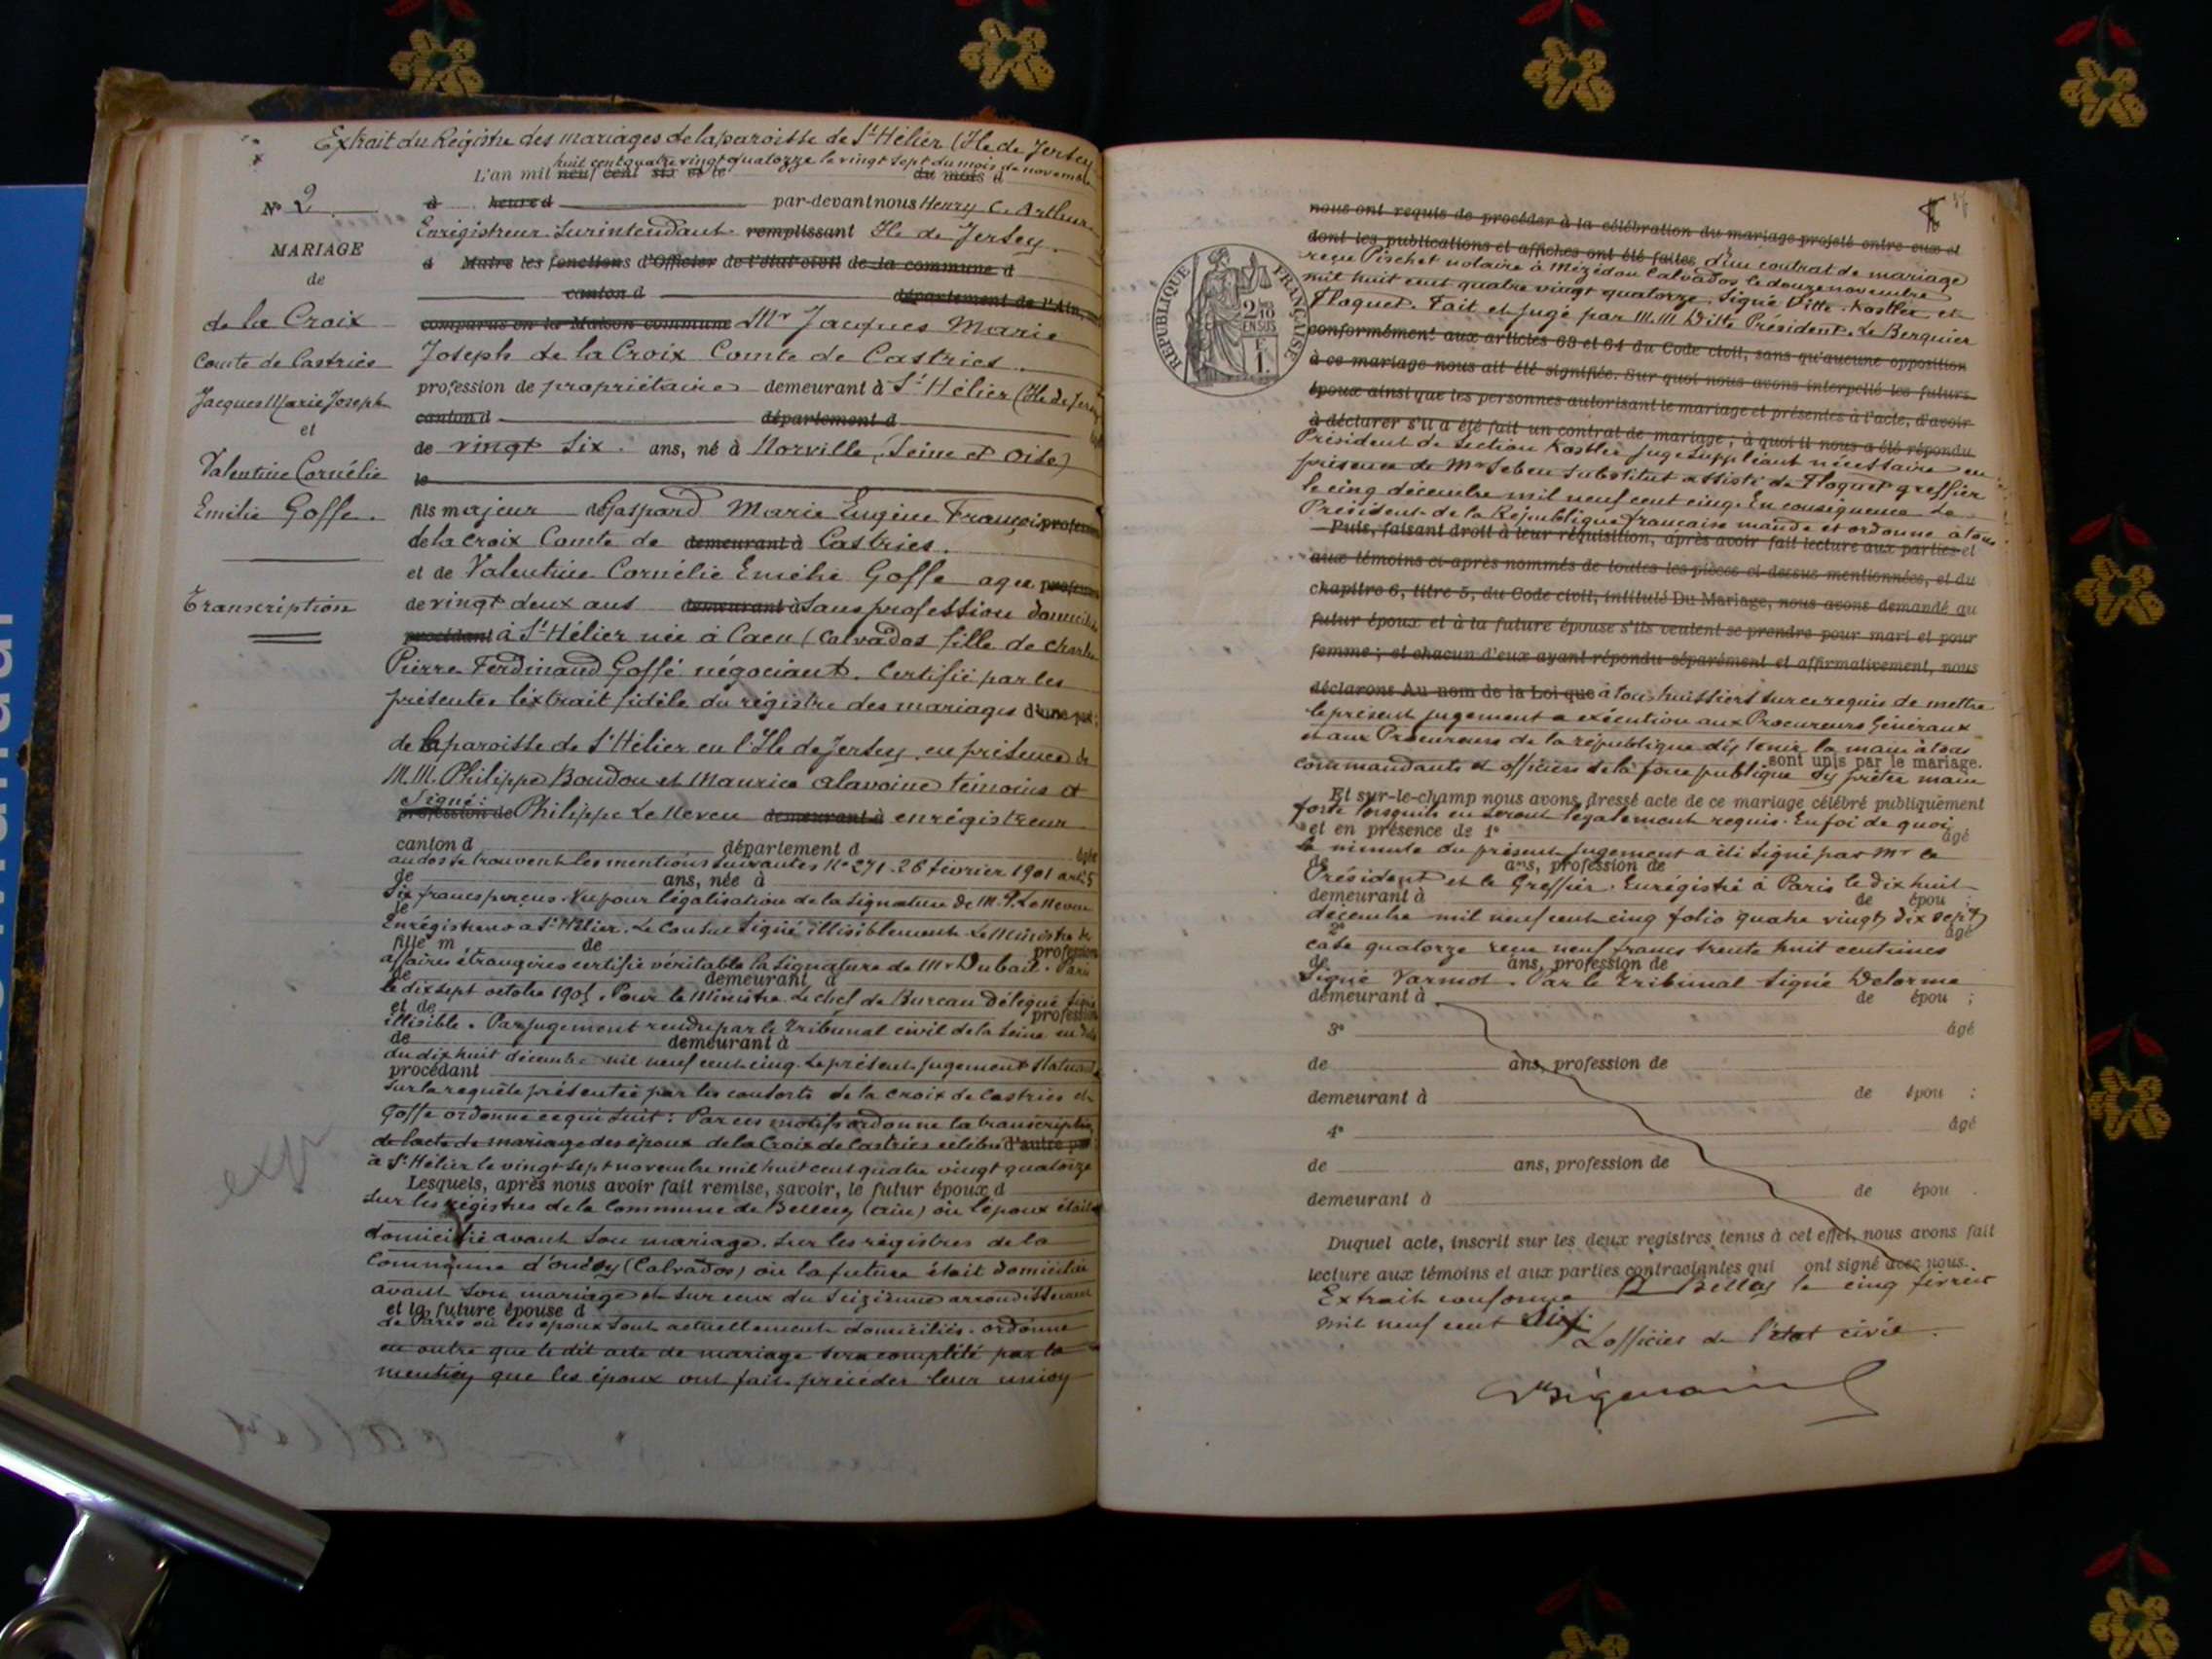 Extrait du Régistre des mariages de la paroisse de St Hélier (Ile de Jersey
huit cent quatre vingt quatorze le vingt sept du mois de novembre
L'an mil neuf cent six et le du mois d
N° 2
à heure d par-devant nous Henry C. Arthur
Enrégistreur Surintendant remplissant Ile de Jersey.
MARIAGE
de
de la Croix
Comte de Castries
Jacques Marie Joseph
et
Valentine Cornélie
Emilie Goffe.
Transcription
d Maire les fonctions d'Officier de l'état civil de la commune d
canton d département de l'Ain,
comparus en la Maison commune Mr Jacques Marie
Joseph de la Croix Comte de Castries.
profession de propriétaire demeurant à St Hélier (Ile de Jersey
canton d département d
de vingt six ans, né à Norville, (Seine et Oise)
le
fils majeur de Gaspard Marie Eugène François profession
de la Croix Comte de demeurant à Castries.
et de Valentine Cornélie Emélie Goffe agée profession
de vingt deux ans demeurant à Sans profession domiciliée
procédant à St Hélier née à Caen (Calvados fille de Charles
Pierre Ferdinand Goffé négociant. Certifié par les
présentes l'extrait fidèle du régistre des mariages d'une part;
de la paroisse de St Hélier en l'Ile de Jersey en présence de
M.M. Philippe Boudou et Maurice Alavoine témoins et
Signé:
profession de Philippe Le Neveu demeurant à enrégistreur
canton d département d âgée
au dos se trouvent les mentions suivantes N° 271. 26 février 1901 art. 5
de ans, née à
Six francs perçus. Vu pour légalisation de la signature de M. P. Le Neveu
le
Enrégistreur à St Hélier. Le Consul Signé illisiblement. Le Ministre des
fille m de profession
affaires étrangères certifie véritable la signature de Mr Dubail. Paris
de demeurant à
le dix sept octobre 1905. Pour le Ministre. Le chef de Bureau Délégué signé
et de profession
illisible. Par jugement rendu par le Tribunal civil de la Seine en date
de demeurant à
du dix huit décembre mil neuf cent cinq. Le présent jugement statuant
procédant
Sur la requête présentée par les consorts de la Croix de Castries et
Goffe ordonne ce qui suit: Par ces motifs ordonne la transcription
de l'acte de mariage des époux de la Croix de Castries célébré d'autre part
à St Hélier le vingt sept novembre mil huit cent quatre vingt quatorze
Lesquels, après nous avoir fait remise, savoir, le futur époux d
Sur les régistres de la Commune de Belley (Ain) où l'époux était
domicilié avant son mariage. Sur les régistres de la
Commune d'ouézy (Calvados) où la future était domiciliée
avant son mariage et sur ceux du Seizième arrondissement
et la future épouse d
de Paris où les époux sont actuellement domiciliés. ordonne
en outre que le dit acte de mariage sera complété par la
mention que les époux ont fait précéder leur union
exp
RÉPUBLIQUE FRANÇAISE
2/10
EN SUS
nous ont requis de procéder à la célébration du mariage projeté entre eux et
dont les publications et affiches ont été faites d'un contrat de mariage
reçu Pischet notaire à Mézidon Calvados le douze novembre
mil huit cent quatre vingt quatorze. Signé Ditte. Kastler et
Floquet. Fait et jugé par M.M Ditte Président. Le Berquier
conformément aux articles 63 et 64 du Code civil, sans qu'aucune opposition
à ce mariage nous ait été signifiée. Sur quoi nous avons interpellé les futurs
époux ainsi que les personnes autorisant le mariage et présentes à l'acte, d'avoir
à déclarer s'il a été fait un contrat de mariage; à quoi il nous a été répondu
Président de Section Kastler juge suppléant nécessaire en
présence de Mr Seben Substitut assisté de Floquet greffier
le cinq décembre mil neuf cent cinq. En conséquence Le
Président de la République française mande et ordonne à tous
Puis, faisant droit à leur réquisition, après avoir fait lecture aux parties et
aux témoins ci-après nommés de toutes les pièces ci-dessus mentionnées, et du
chapitre 6, titre 5, du Code civil, intitulé Du Mariage, nous avons demandé au
futur époux et à la future épouse s'ils veulent se prendre pour mari et pour
femme; et chacun d'eux ayant répondu séparément et affirmativement, nous
déclarons Au nom de la Loi que à tous huissiers sur ce requis de mettre
le présent jugement à exécution aux Procureurs Généraux
et aux Procureurs de la république d'y tenir la main à tous
sont unis par le mariage.
commandants et officiers de la force publique d'y prêter main
Et sur-le-champ nous avons dressé acte de ce mariage célébré publiquement
forte lorsqu'ils en seront légalement requis. En foi de quoi
et en présence de 1° âgé
la minute du présent jugement a été signé par Mr le
de ans, profession de
Président et le Greffier. Enrégistré à Paris le dix huit
demeurant à de épou ;
décembre mil neuf cent cinq folio quatre vingt dix sept
2° âgé
case quatorze reçu neuf francs trente huit centimes
de ans, profession de
Signé Varmot. Par le Tribunal signé Delorme
demeurant à de épou ;
3° âgé
de ans, profession de
demeurant à de épou ;
4° âgé
de ans, profession de
demeurant à de épou .
Duquel acte, inscrit sur les deux registres tenus à cet effet, nous avons fait
lecture aux témoins et aux parties contractantes qui ont signé avec nous.
Extrait conforme Belley le cinq février
mil neuf cent six.
L'officier de l'état civil.